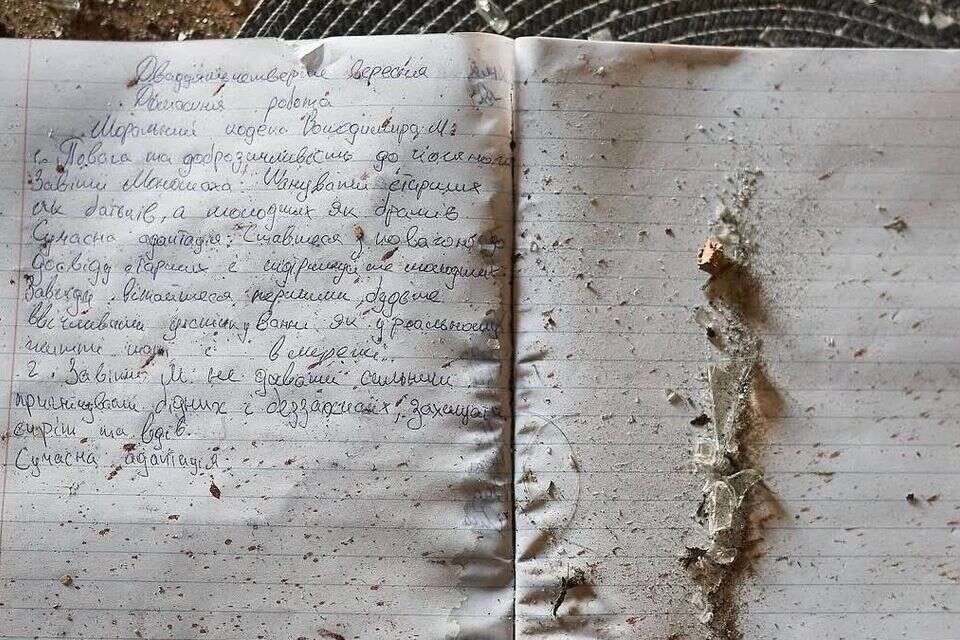 Двадцять четверте вересня
Домашня робота
Моральний кодекс Володимира М:
1. Повага та доброзичливість до
Завіти Мономаха: Шанувати старших
як батьків, а молодших як братів
Сучасна адаптація: Ставтеся з повагою до
досвіду старших і підтримуйте молодших.
Завжди вітайтеся першими, будьте
ввічливими у спілкуванні як у реальному
житті так і в мережі.
2. Завіти М: не давати сильним
пригнічувати бідних і беззахисних, захищати
сиріт та вдів.
Сучасна адаптація